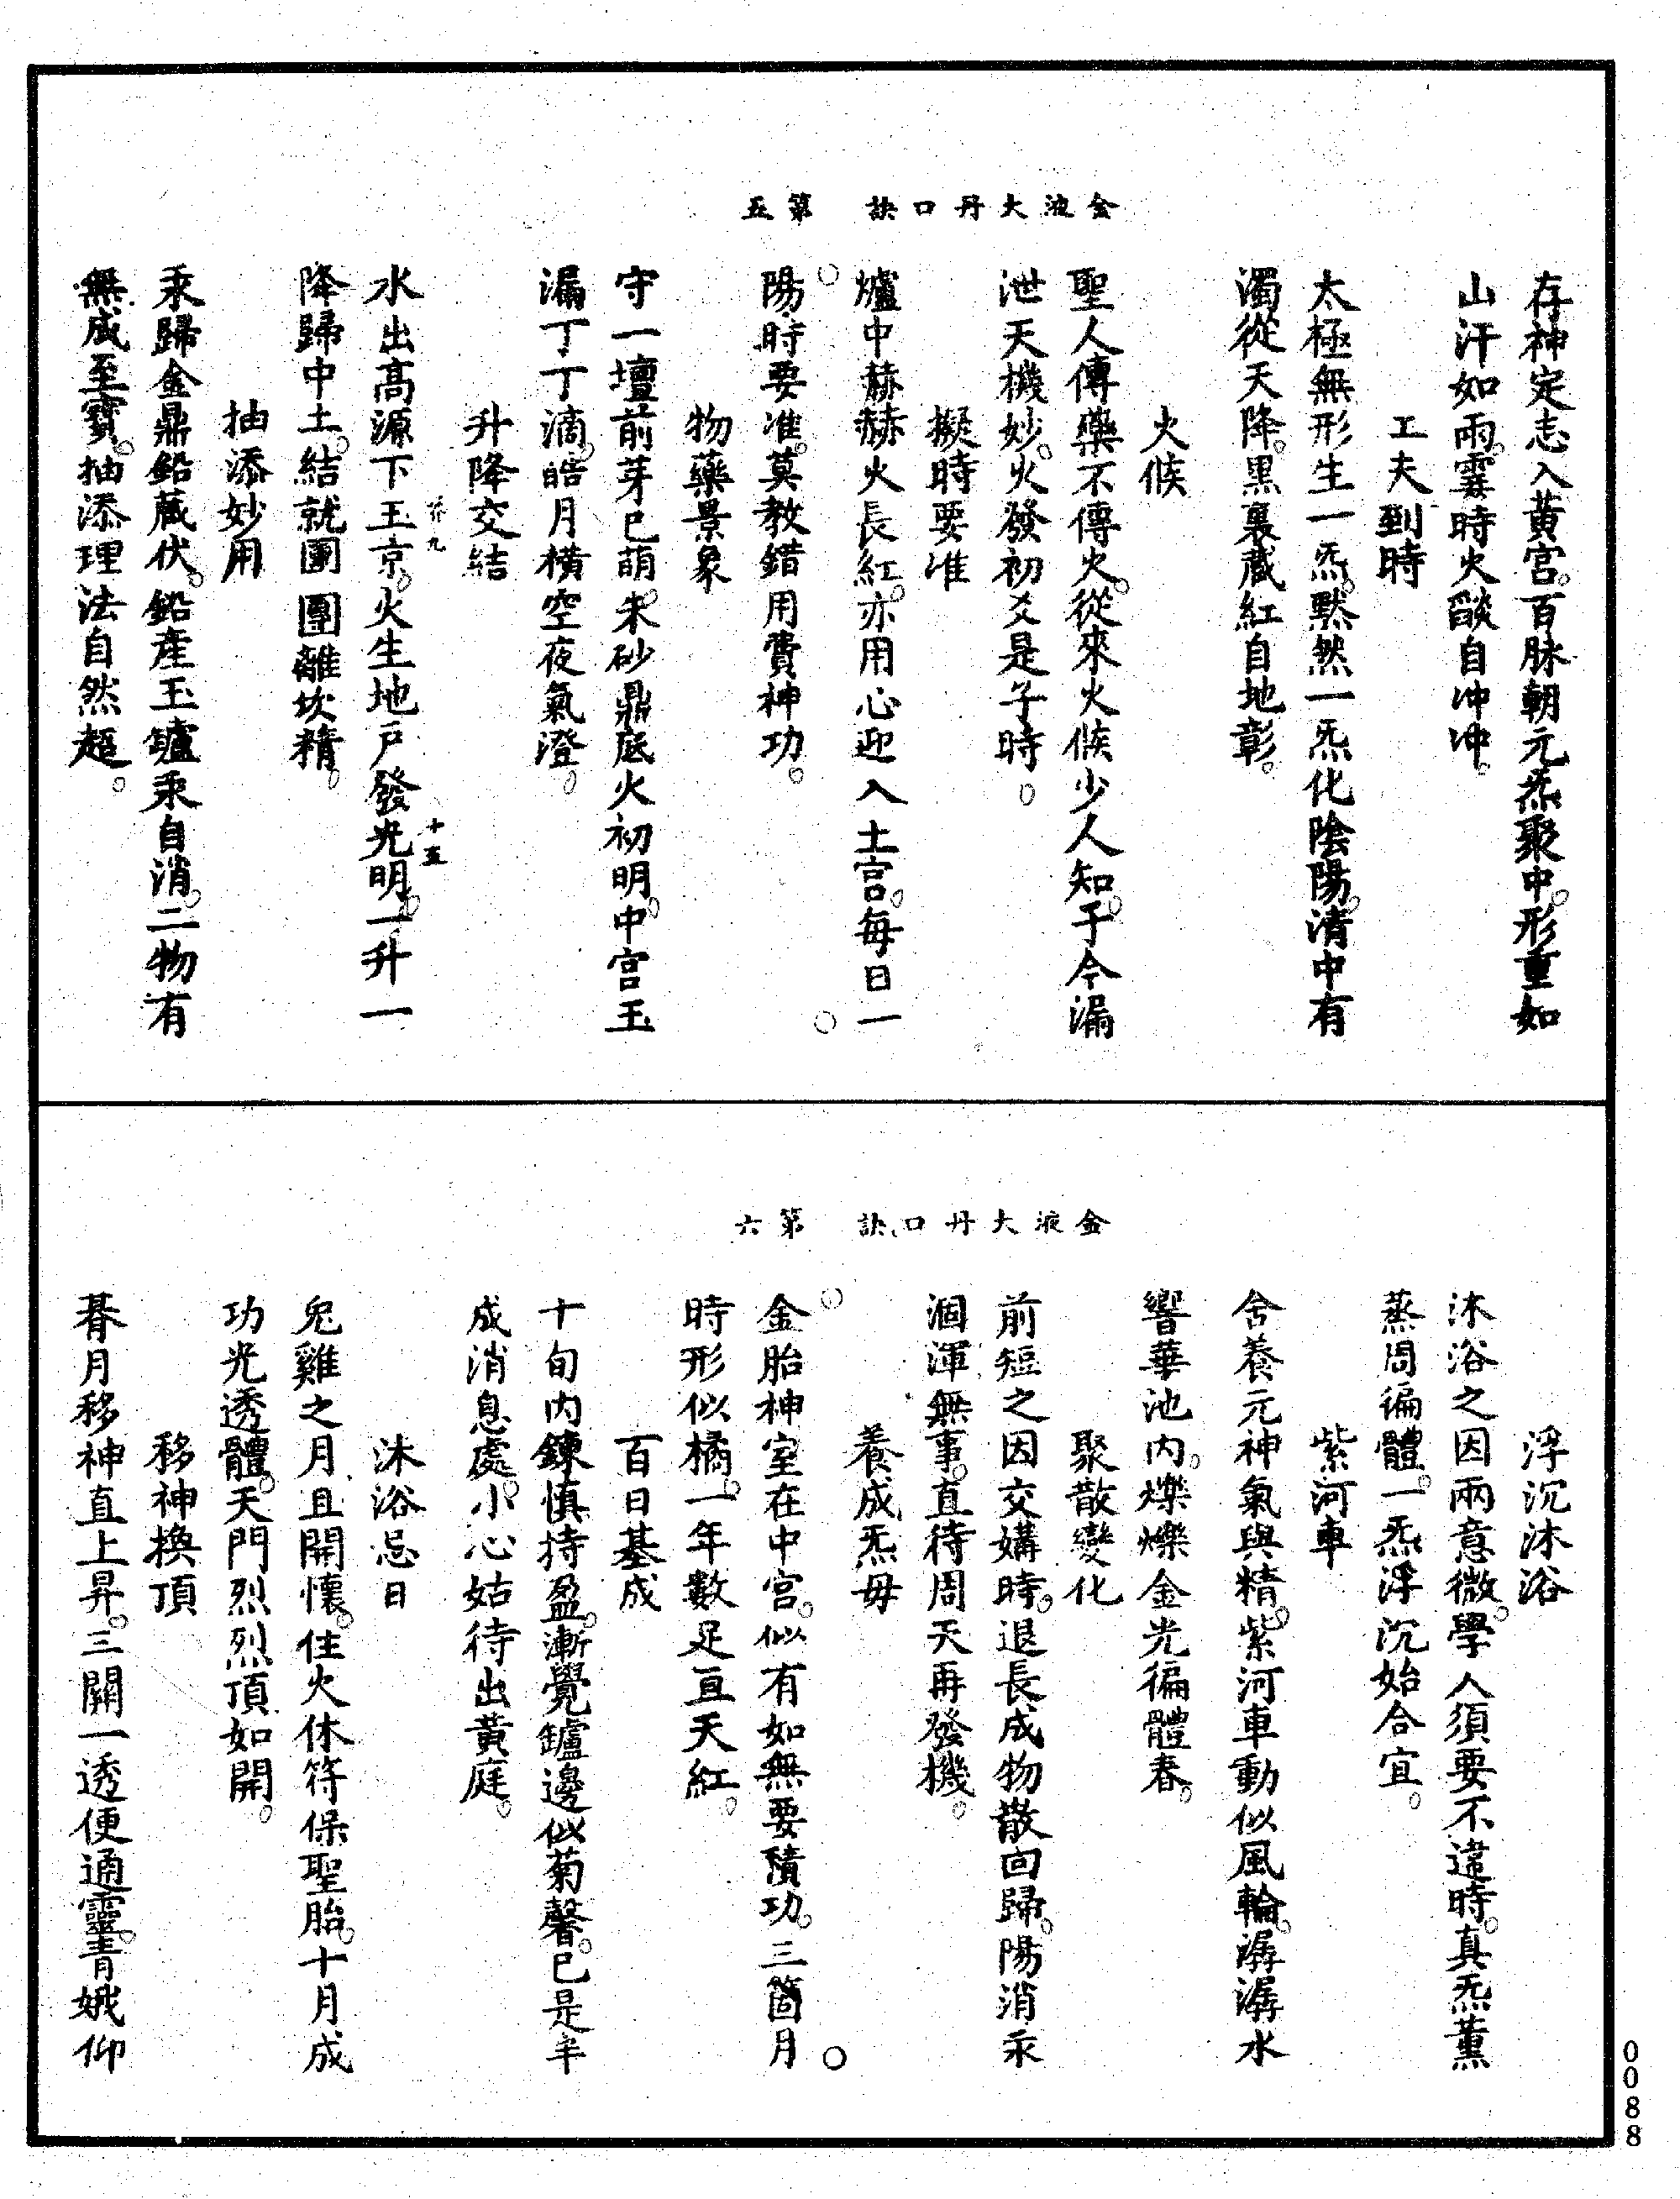 金液大丹口訣　第五
存神定志入黃宮。百脉朝元炁聚中。形重如
山汗如雨。霎時火燄自冲冲。
工夫到時
太極無形生一炁。默然一炁化陰陽。清中有
濁從天降。黑裏藏紅自地彰。
火候
聖人傳藥不傳火。從來火候少人知。于今漏
泄天機妙。火發初爻是子時。
擬時要准
爐中赫赫火長紅。亦用心迎入土宮。每日一
陽時要准。莫教錯用費神功。
物藥景象
守一壇前芽已萌。朱砂鼎底火初明。中宮玉
漏丁丁滴。皓月橫空夜氣澄。
升降交結
芥九　十五
水出高源下玉京。火生地戶發光明。一升一
降歸中土。結就團團離坎精。
抽添妙用
汞歸金鼎鉛藏伏。鉛產玉鑪汞自消。二物有
無成至寶。抽添理法自然超。
金液大丹口訣　第六
浮沉沐浴
沐浴之因兩意微。學人須要不違時。真炁薰
蒸周徧體。一炁浮沉始合宜。
紫河車
舍養元神氣與精。紫河車動似風輪。潺潺水
響華池內。爍爍金光徧體春。
聚散變化
前短之因交媾時。退長成物散回歸。陽消汞
涸渾無事。直待周天再發機。
養成炁母
金胎神室在中宮。似有如無要積功。三箇月
時形似橘。一年數足亘天紅。
百日基成
十旬內鍊慎持盈。漸覺鑪邊似菊馨。已是半
成消息處。小心姑待出黃庭。
沐浴忌日
兔雞之月且開懷。住火休符保聖胎。十月成
功光透體。天門烈烈頂如開。
移神換頂
朞月移神直上昇。三關一透便通靈。青娥仰
0088